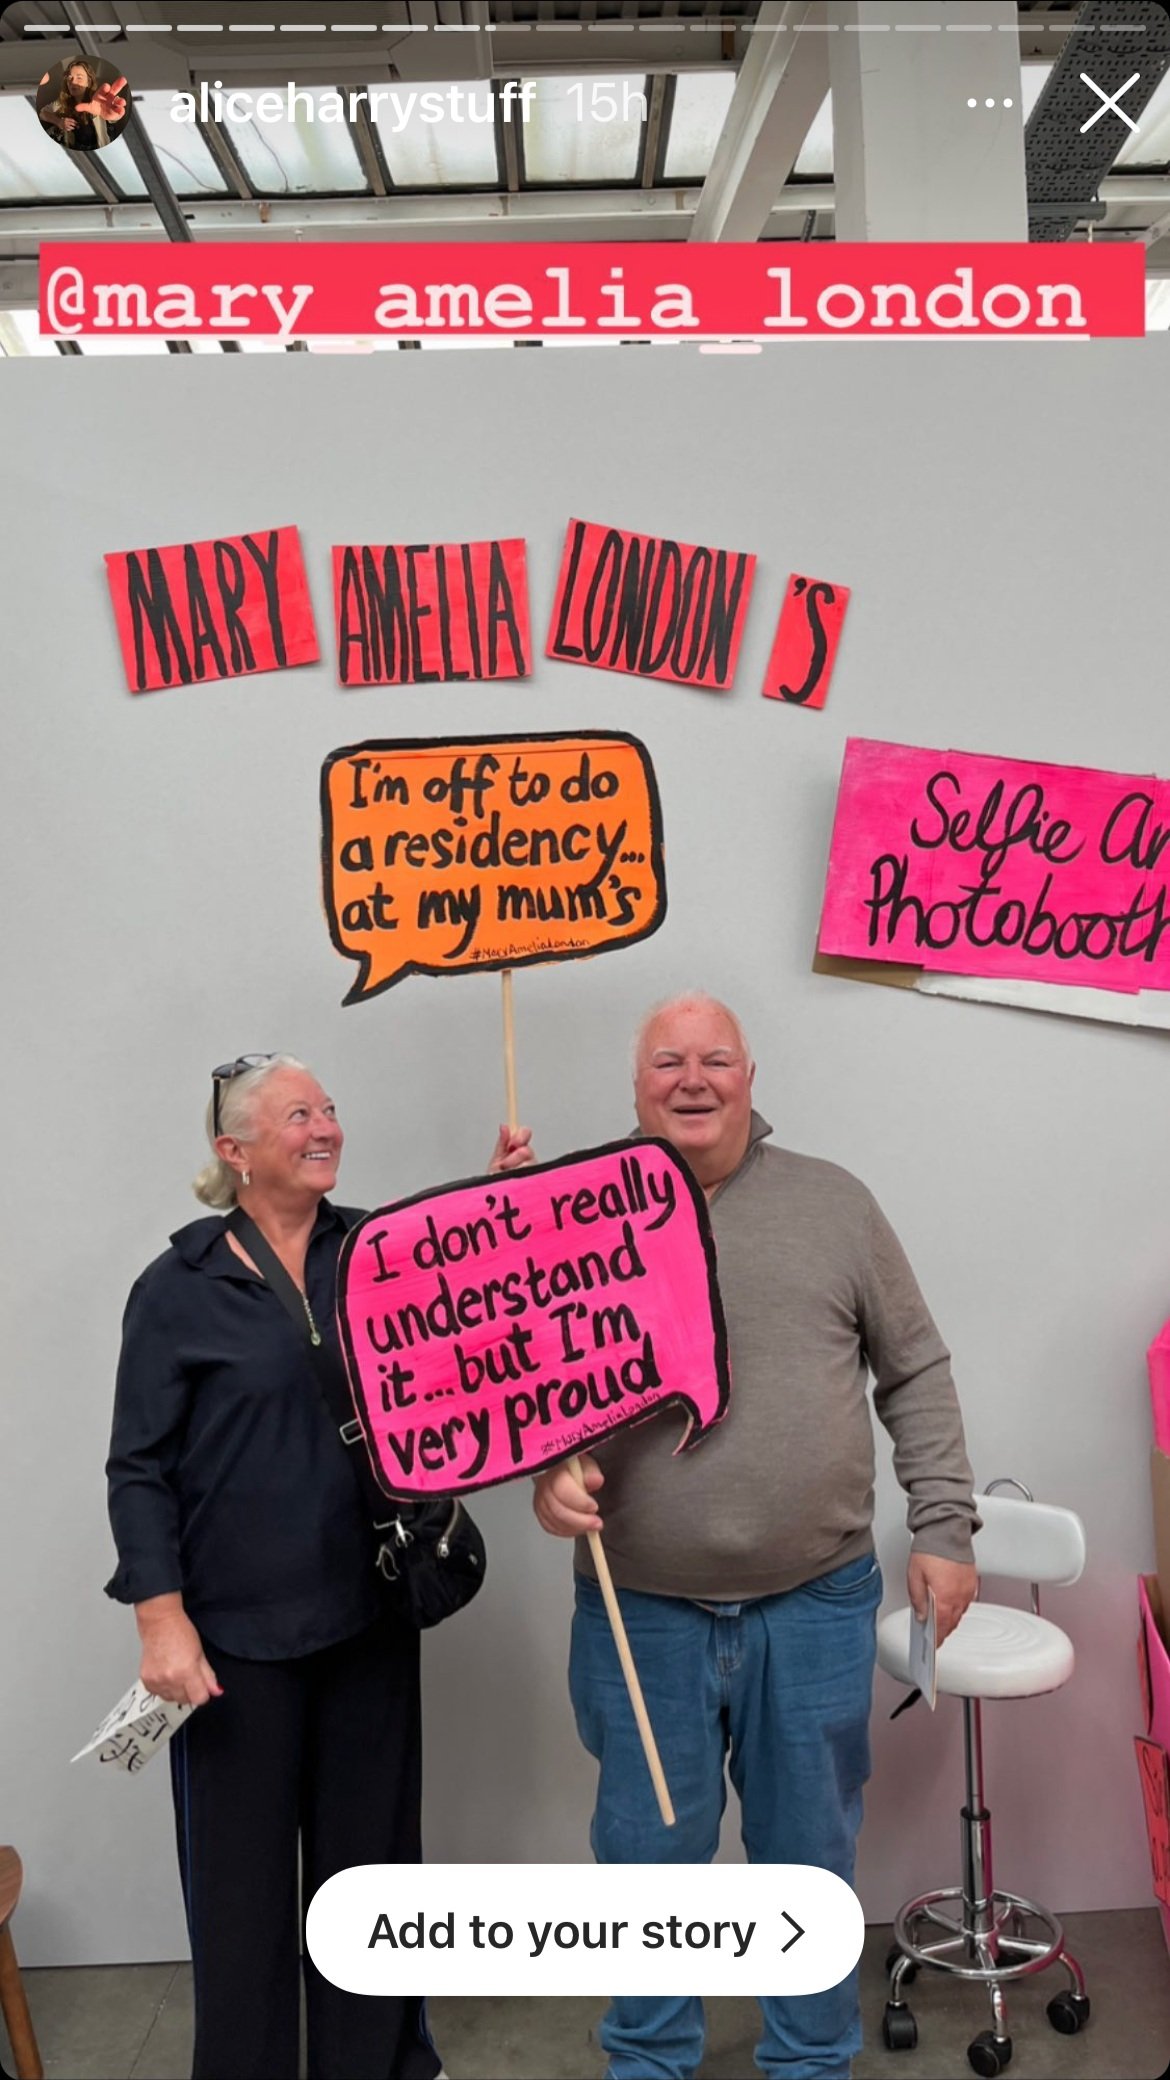 aliceharrystuff 15h
@mary_amelia_london
MARY AMELIA LONDON'S
I'm off to do
a residency...
at my mum's
#MaryAmeliaLondon
Selfie
Photobooth
I don't really
understand
it...but I'm
very proud
#MaryAmeliaLondon
Add to your story